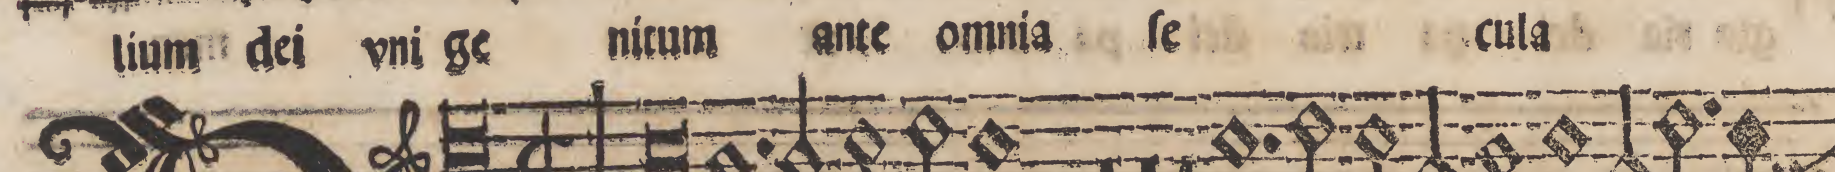 lium dei vni ge nitum ante omnia ſe cula